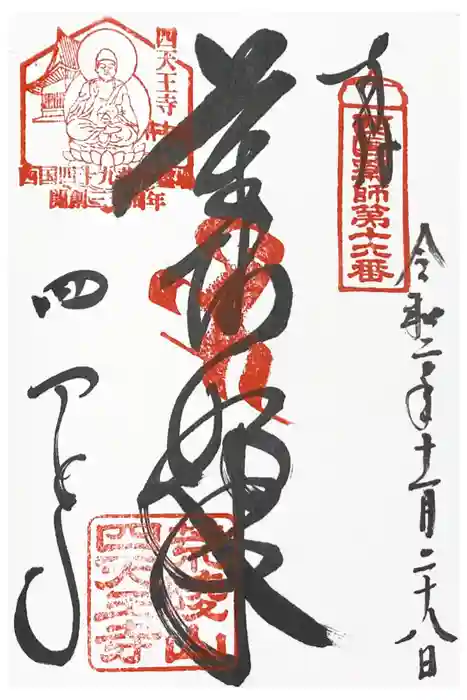 奉拝
西国薬師第十六番
令和二年十一月二十八日
薬師如来
四天王寺
四天王寺
西国四十九薬師霊場
開創三十周年
荒陵山
四天王寺